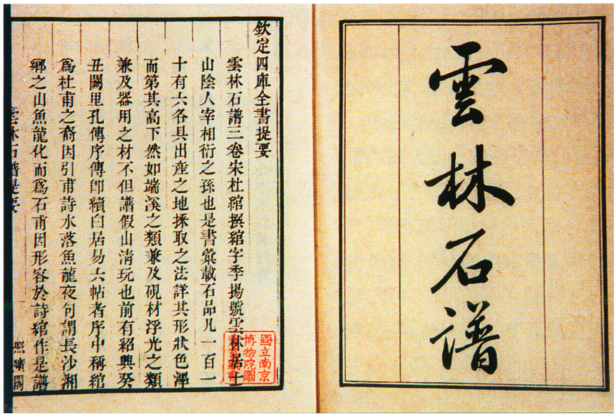 雲林石譜
欽定四庫全書提要
雲林石譜三卷宋杜綰撰綰字季揚號雲林居士
山陰人宰相衍之孫也是書彙載石品凡一百一
十有六各具出產之地採取之法詳其形狀色澤
而第其高下然如端溪之類兼及硯材浮光之類
兼及器用之材不但譜假山清玩也前有紹興癸
丑闕里孔傳序傳卽續白居易六帖者序中稱綰
爲杜甫之裔因引甫詩水落魚龍夜句謂長沙湘
鄉之山魚龍化而爲石甫因形容於詩綰作是譜
雲林石譜提要
照曠閣
國立南京
博物院圖